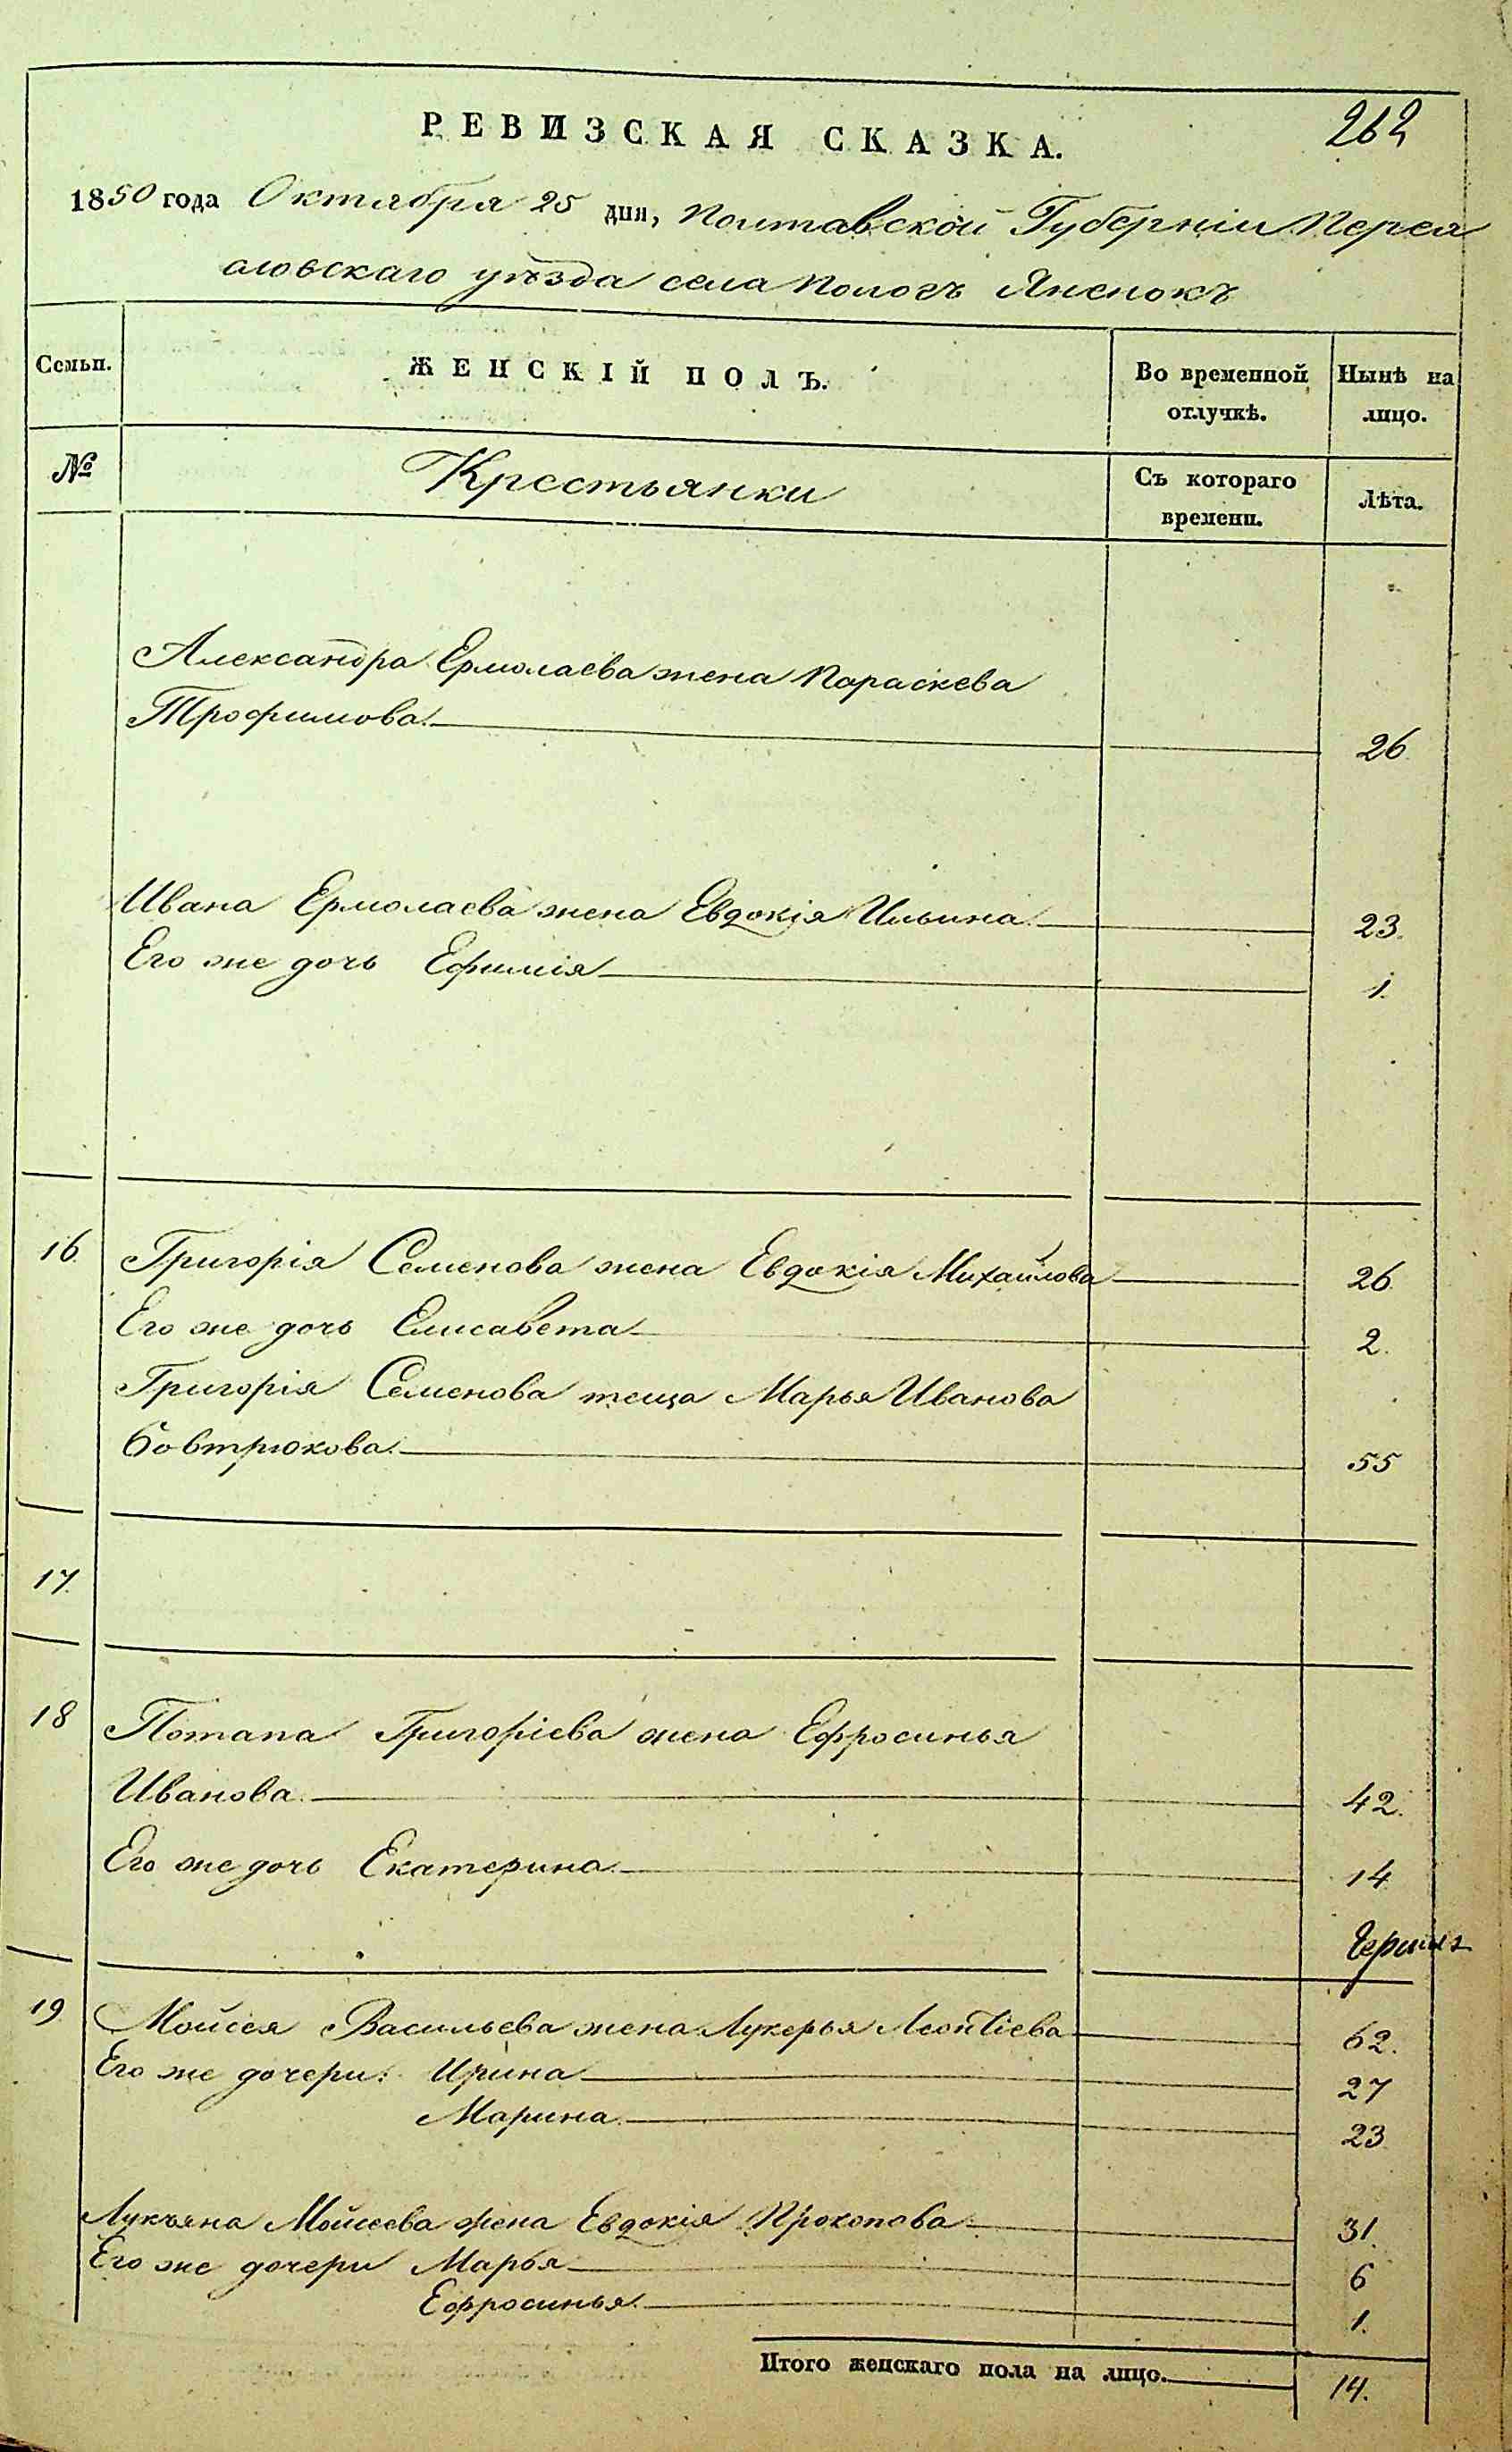 РЕВИЗСКАЯ СКАЗКА.
262
1850 года Октября 25 дня, Полтавской Губерніи Перея
словскаго уѣзда села Пологъ Яненокъ
Семьи.
ЖЕНСКІЙ ПОЛЪ.
Во временной отлучкѣ.
Нынѣ на лицо.
№
Крестьянки
Съ котораго времени.
Лѣта.
Александра Ермолаева жена Параскева
Трофимова. 26
Ивана Ермолаева жена Евдокія Ильина 23.
Его же дочь Ефимія 1.
16. Григорія Семенова жена Евдокія Михайлова 26
Его же дочь Елисавета 2.
Григорія Семенова теща Марья Иванова
Бовтрюкова. 55
17.
18 Потапа Григоріева жена Ефросинья
Иванова. 42.
Его же дочь Екатерина. 14
19. Мойсея Васильева жена Лукерья Леонтіева 62.
Его же дочери: Ирина 27
Марина. 23
Лукъяна Мойсеева жена Евдокія Прокопова 31.
Его же дочери Марья 6
Ефросинья. 1.
Итого женскаго пола на лицо. 14.